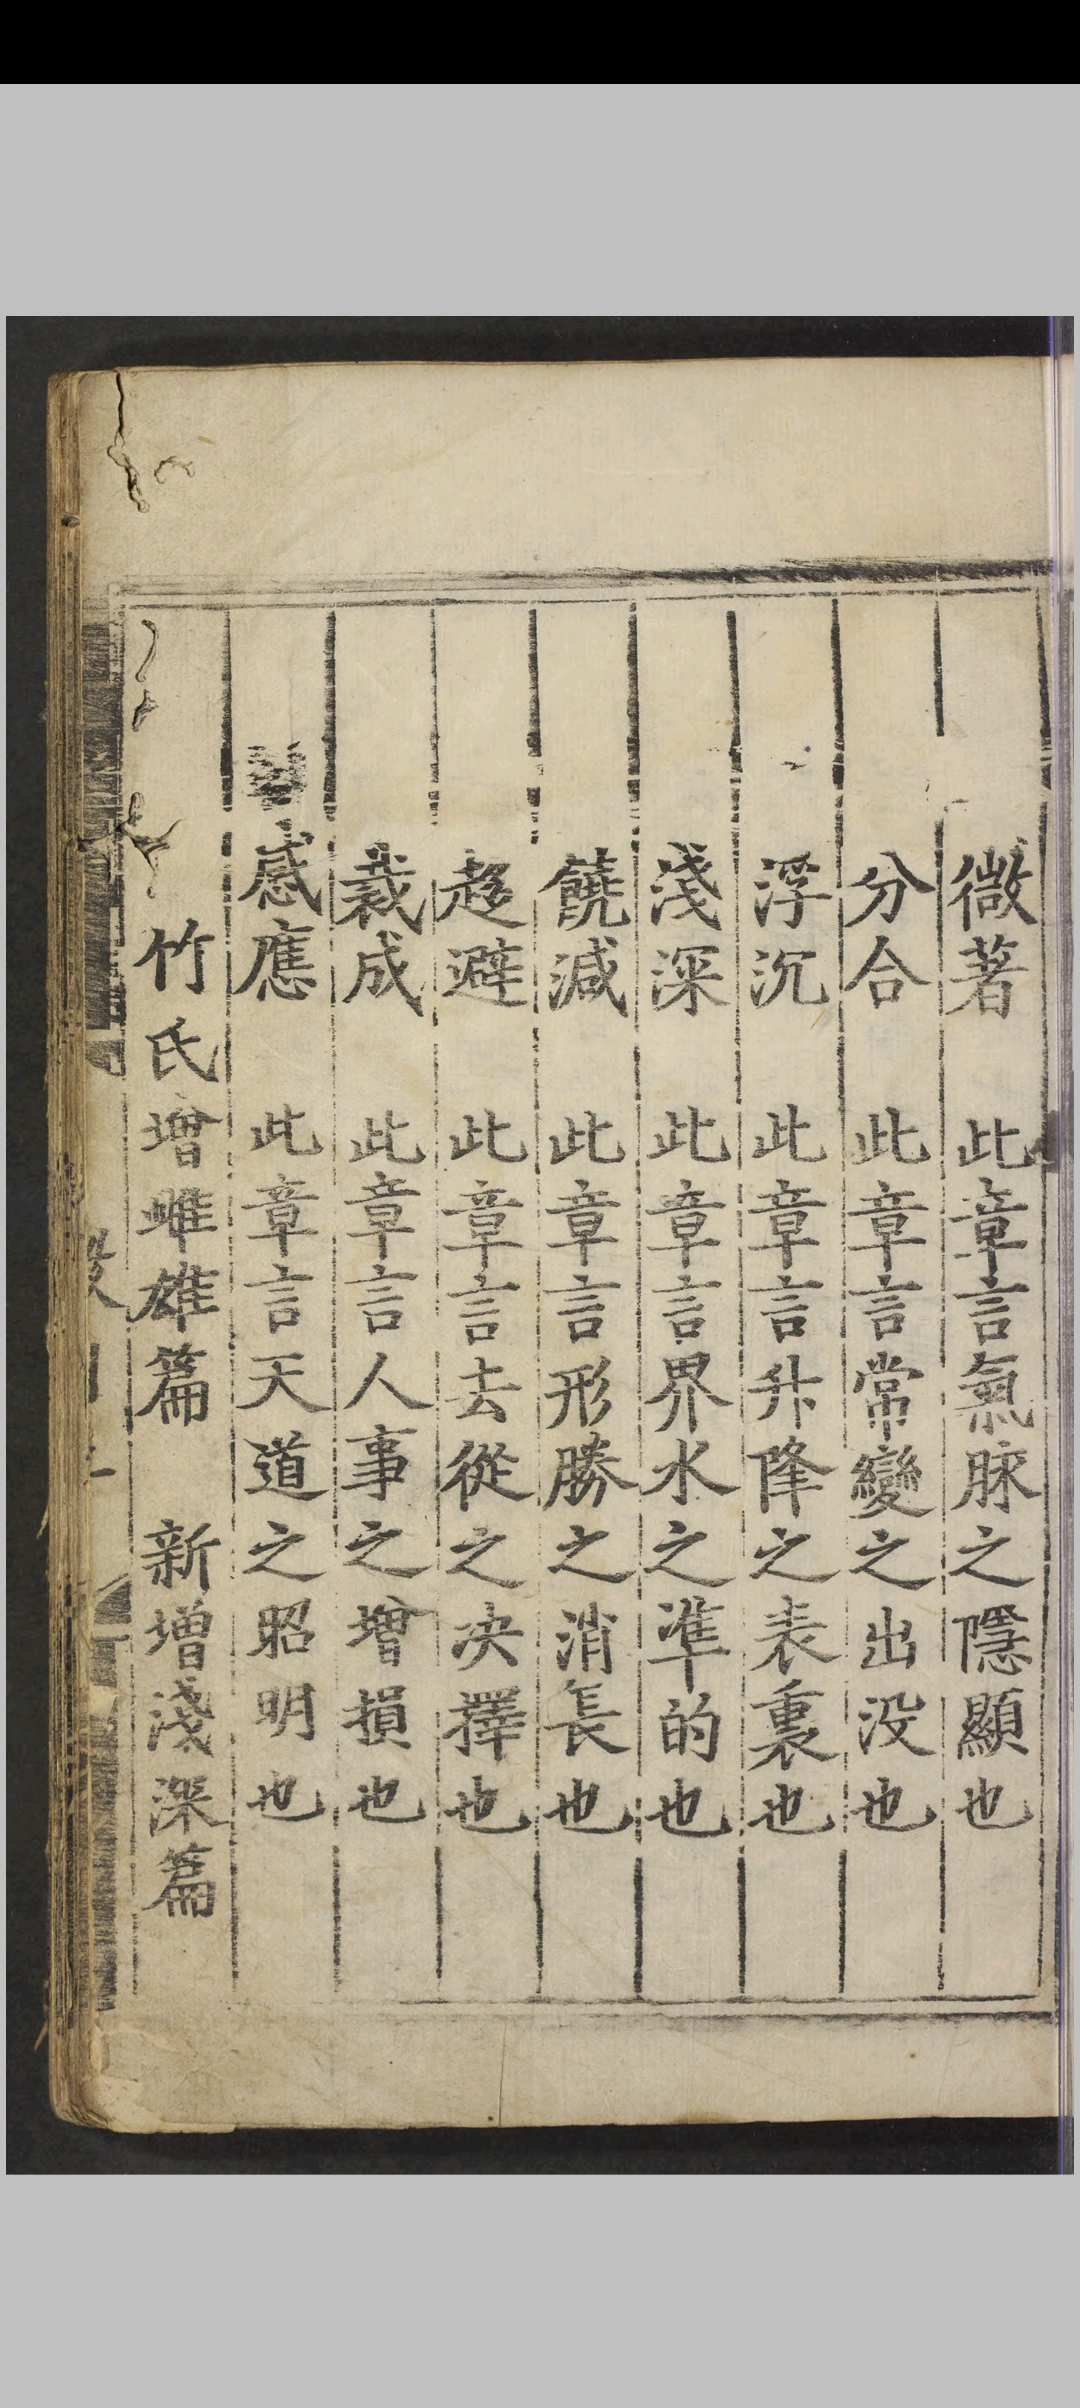 微著 此章言氣脉之隱顯也
分合 此章言常變之出没也
浮沉 此章言升降之表裏也
淺深 此章言界水之準的也
饒減 此章言形勝之消長也
趍避 此章言去從之决擇也
裁成 此章言人事之增損也
感應 此章言天道之昭明也
竹氏增雌雄篇 新增淺深篇